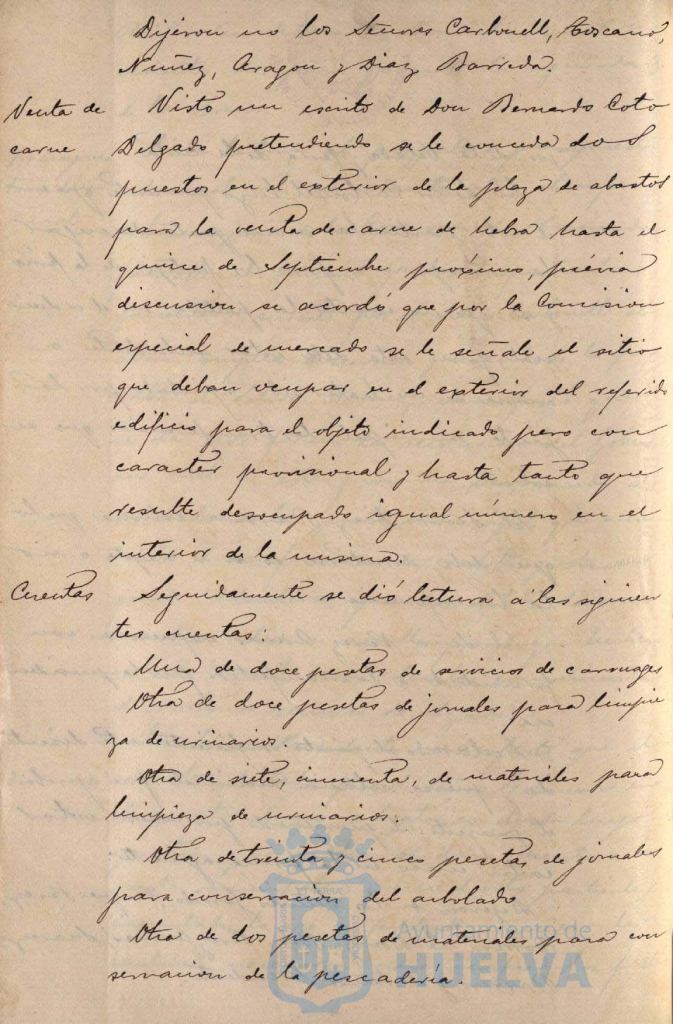 Dijeron no los Señores Carbonell, Toscano,
Nuñez, Aragon y Diaz Barreda.
Venta de carne
Visto un escrito de Don Bernardo Coto
Delgado pretendiendo se le conceda dos
puestos en el exterior de la plaza de abastos
para la venta de carne de hebra hasta el
quince de Septiembre próximo, prévia
discusion se acordó que por la Comision
especial de mercado se le señale el sitio
que deban ocupar en el exterior del referido
edificio para el objeto indicado pero con
caracter provisional y hasta tanto que
resulte desocupado igual número en el
interior de la misma.
Cuentas
Seguidamente se dió lectura á las siguien
tes cuentas:
Una de doce pesetas de servicios de carruages
Otra de doce pesetas de jornales para limpie
za de urinarios.
Otra de siete, cincuenta, de materiales para
limpieza de urinarios.
Otra de treinta y cinco pesetas de jornales
para conservacion del arbolado
Otra de dos pesetas de materiales para con
servacion de la pescadería.
Ayuntamiento de
HUELVA